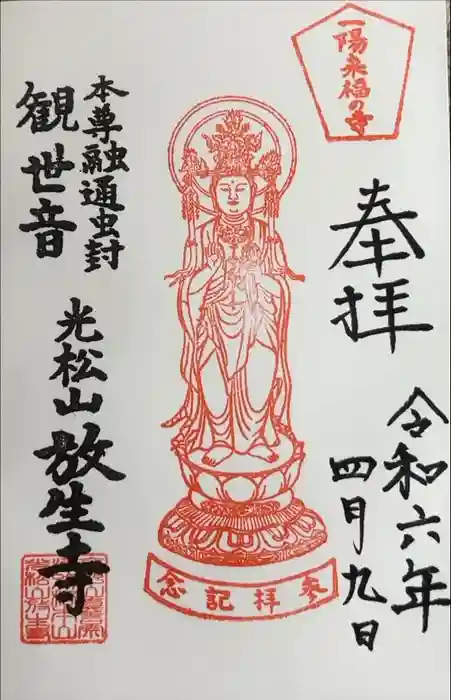 一陽来福の寺
奉拝
令和六年
四月九日
参拝記念
本尊融通虫封
観世音
光松山
放生寺